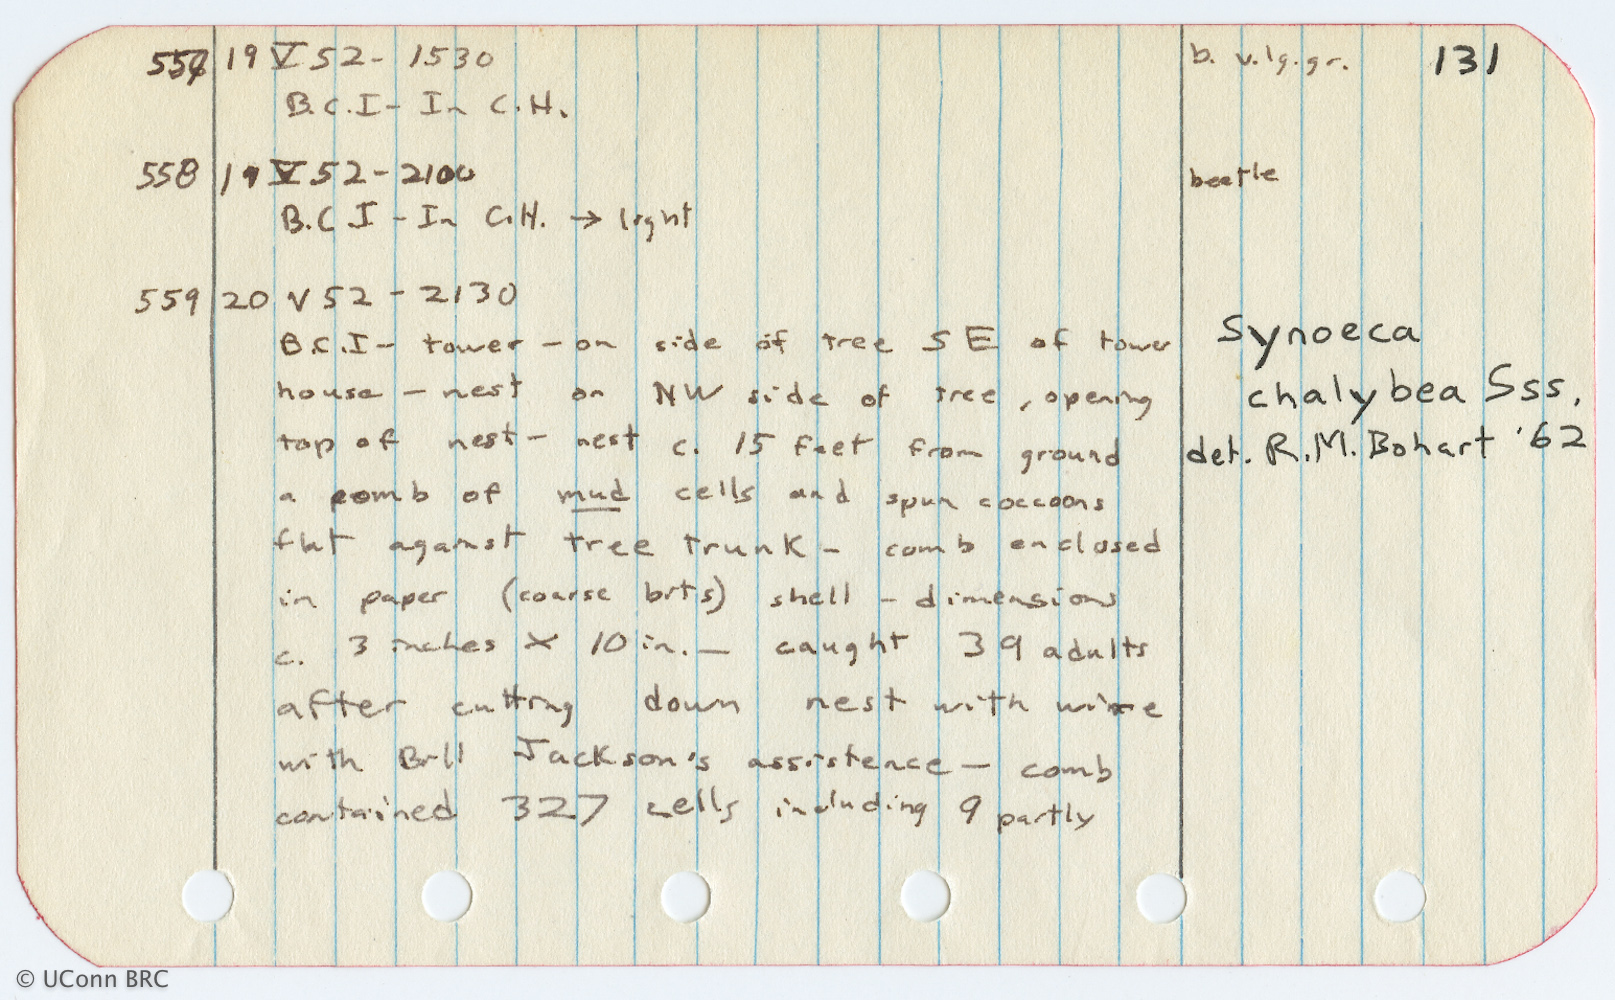 19 V 52 - 1530 b. v. lg. gr. 131
B.C.I - In C.H.
558 19 V 52 - 2100 beetle
B.C.I - In C.H. → light
559 20 V 52 - 2130
B.C.I - tower - on side of tree SE of tower Synoeca
house - nest on NW side of tree, opening chalybea Sss,
top of nest - nest c. 15 feet from ground det. R.M. Bohart '62
a comb of mud cells and spun coccoons
flat against tree trunk - comb enclosed
in paper (coarse bits) shell - dimensions
c. 3 inches x 10 in. - caught 39 adults
after cutting down nest with wire
with Bill Jackson's assistence - comb
contained 327 cells including 9 partly
© UConn BRC